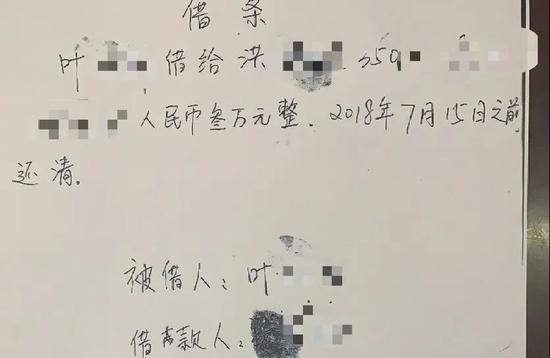 借条
叶 借给洪 350
人民币叁万元整．2018年7月15日之前
还清．
被借人：叶
借款人：